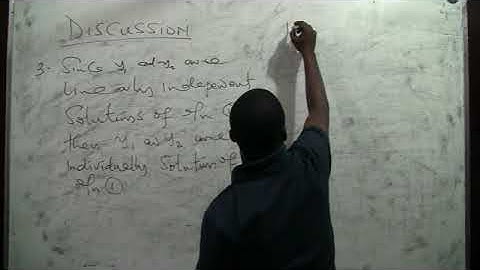 DISCUSSION
3. Since y1 and y2 are
Linearly independent
Solutions of
then y1 and y2 are
individually Solution of
①